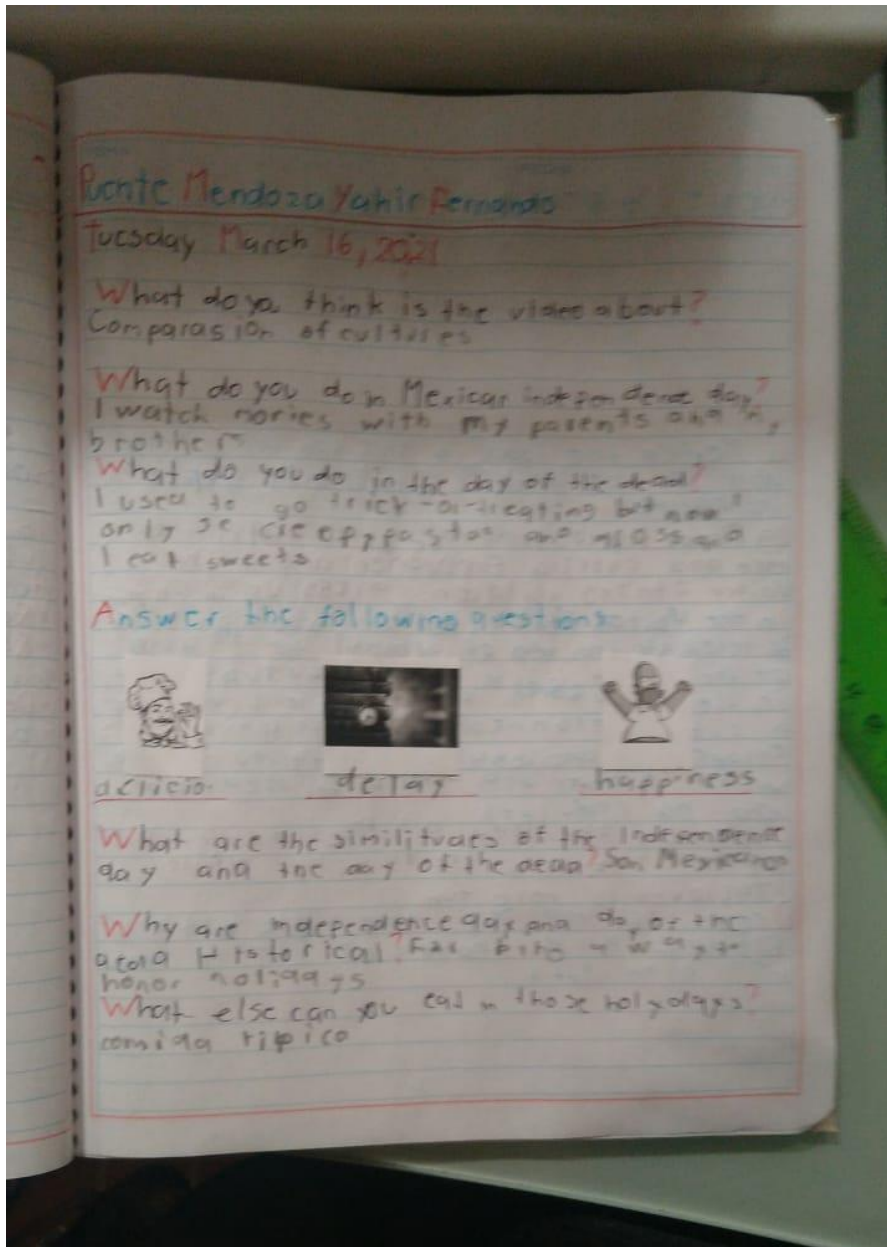 Puente Mendoza Yahir Fernando
Tuesday March 16, 2021
What do you think is the video about?
Comparasion of cultures
What do you do in Mexican independence day?
I watch movies with my parents and my
brothers
What do you do in the day of the dead?
I used to go trick-or-treating but now
only se
I eat sweets
Answer the following questions
delicio
delay
happiness
What are the similitudes of the Independence
day and the day of the dead? Son Mexicanos
Why are independence day and day of the
Historical?
honor holidays
What else can you eat in those holydays?
comida tipico